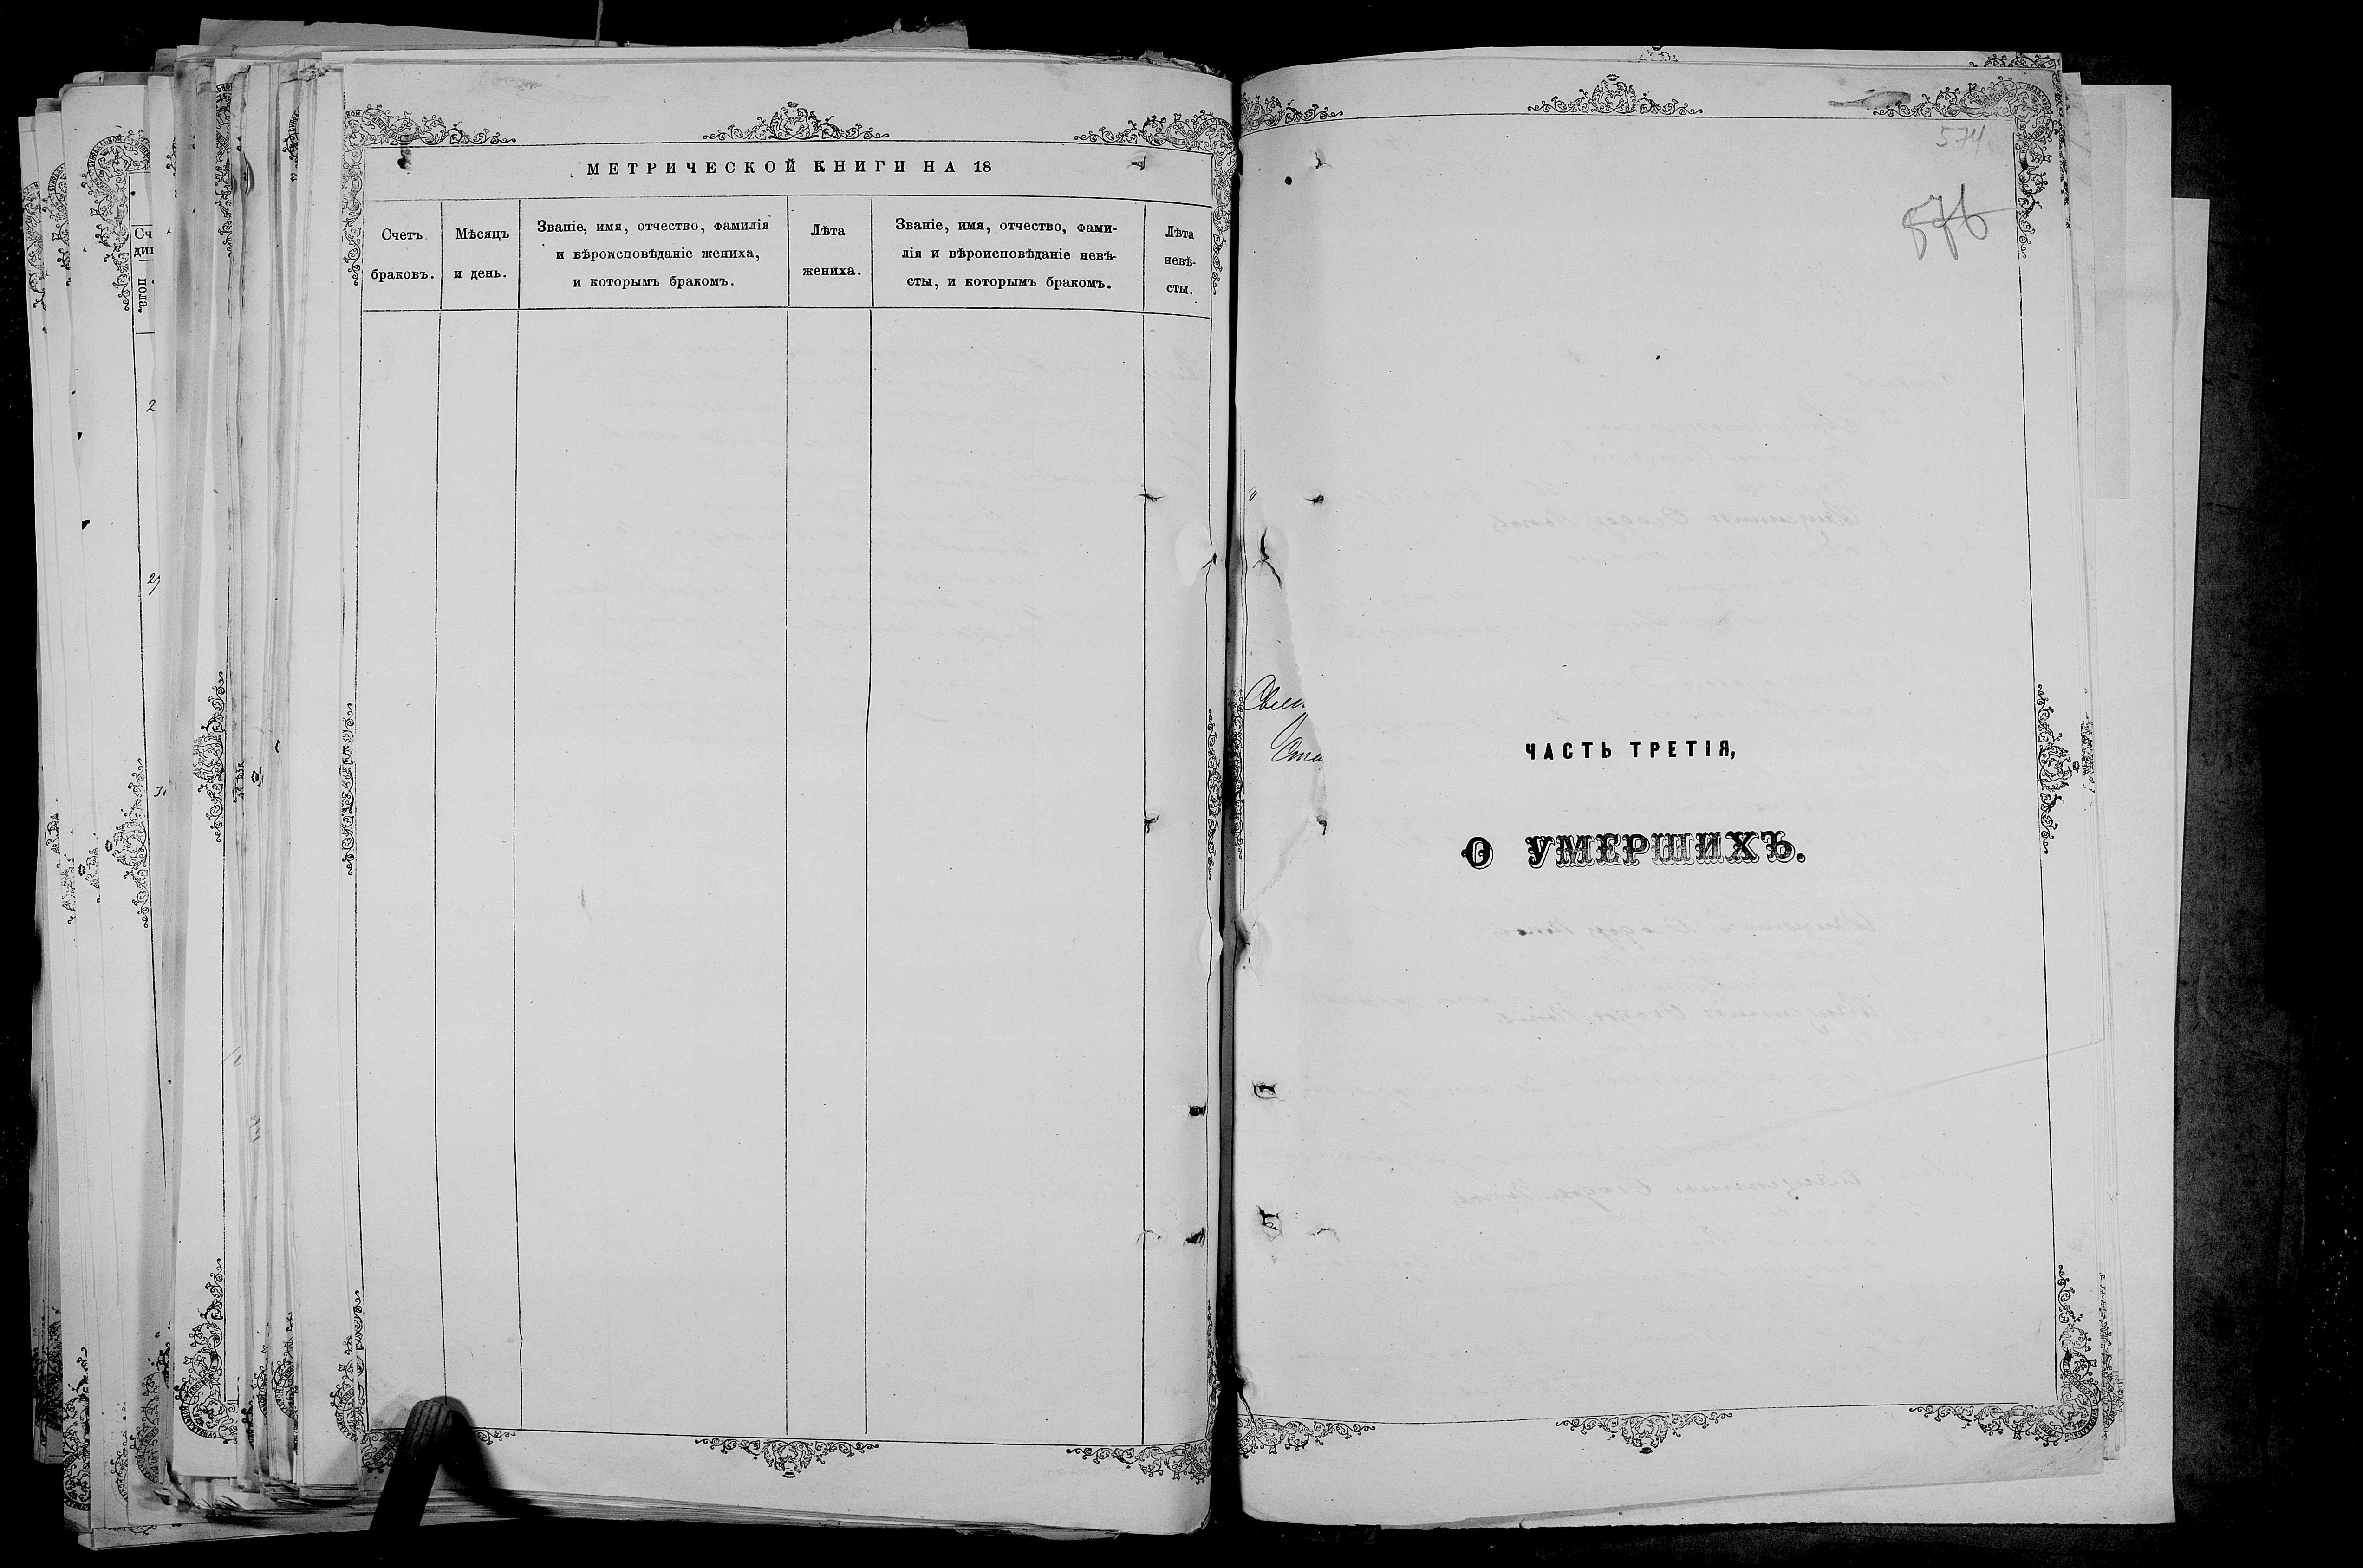 МЕТРИЧЕСКОЙ КНИГИ НА 18
Счетъ
браковъ.
Мѣсяцъ
и день.
Званіе, имя, отчество, фамилія
и вѣроисповѣданіе жениха,
и которымъ бракомъ.
Лѣта
жениха.
Званіе, имя, отчество, фами-
лія и вѣроисповѣданіе невѣ-
сты, и которымъ бракомъ.
Лѣта
невѣ-
сты.
574
576
ЧАСТЬ ТРЕТІЯ,
О УМЕРШИХЪ.